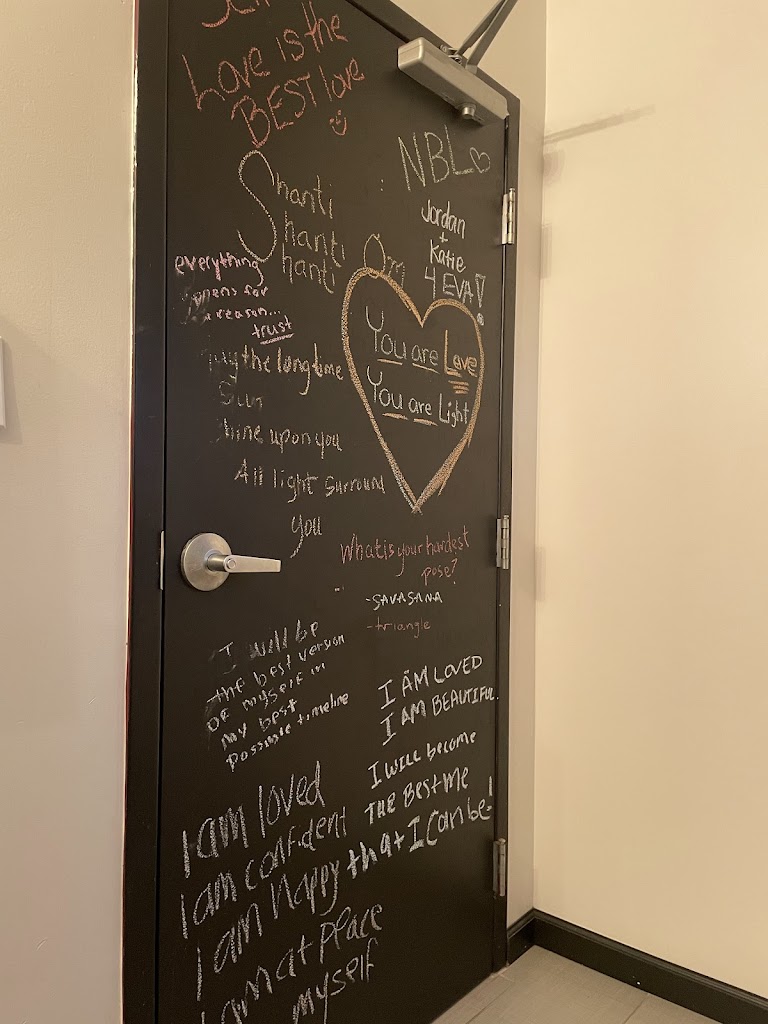 Love is the
BEST love
NBL
Shanti
Shanti
Shanti
Om
Jordan
+
Katie
4 EVA!
everything
for
reason...
trust
the longtime
Sun
upon you
All light surround
you
You are Love
You are Light
What is your hardest
pose?
- SAVASANA
- triangle
I will be
the best version
of myself in
my best
possible timeline
I AM LOVED
I AM BEAUTIFUL.
I WILL become
THE BEST ME
that I can be!
I am loved
I am confident
I am happy
I am at place
myself